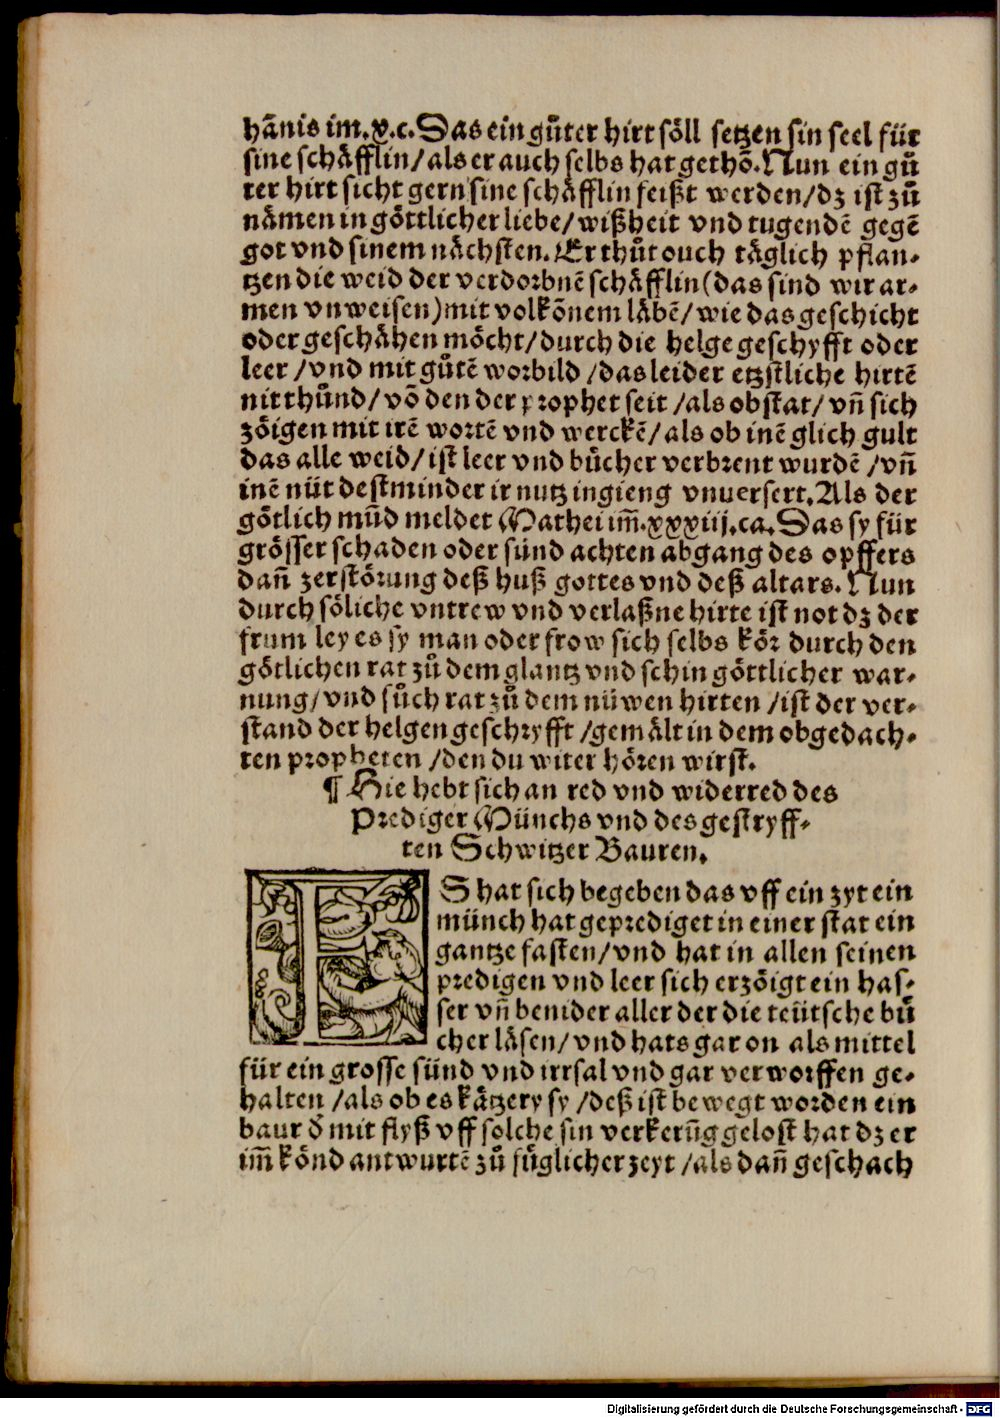 hãnis im.x.c. Das ein gůter hirt söll setzen sin seel für
sine schäfflin/als er auch selbs hat gethõ. Nun ein gů
ter hirt sicht gern sine schäfflin feißt werden/dz ist zů
nämen in göttlicher liebe/wißheit vnd tugendẽ gegẽ
got vnd sinem nächsten. Er thůt ouch täglich pflan-
tzen die weid der verdorbnẽ schäfflin(das sind wir ar-
men vnweisen)mit volkõnem läbẽ/wie das geschicht
oder geschähen möcht/durch die helge geschyfft oder
leer/vnd mit gůtẽ worbild/das leider etzstliche hirtẽ
nit thůnd/võ den der prophet seit/als obstat/vñ sich
zöigen mit irẽ wortẽ vnd werckẽ/als ob inẽ glich gult
das alle weid/ist leer vnd bücher verbrent wurdẽ/vñ
inẽ nüt destminder ir nutz ingieng vnuersert. Als der
götlich mũd meldet Mathei im̃.xxxiij.ca. Das sy für
grösser schaden oder sünd achten abgang des opffers
dañ zerstörung deß huß gottes vnd deß altars. Nun
durch söliche vntrew vnd verlaßne hirte ist not dz der
frum ley es sy man oder frow sich selbs kör durch den
götlichen rat zů dem glantz vnd schin göttlicher war-
nung/vnd sůch rat zů dem nüwen hirten/ist der ver-
stand der helgen geschryfft/gemält in dem obgedach-
ten propheten/den du witer hören wirst.
¶ Hie hebt sich an red vnd widerred des
Prediger Münchs vnd des gestryff-
ten Schwitzer Bauren.
ES hat sich begeben das vff ein zyt ein
münch hat geprediget in einer stat ein
gantze fasten/vnd hat in allen seinen
predigen vnd leer sich erzöigt ein has-
ser vñ benider aller der die teütsche bü
cher läsen/vnd hats gar on als mittel
für ein grosse sünd vnd irrsal vnd gar verworffen ge-
halten/als ob es kätzery sy/deß ist bewegt worden ein
baur d̃ mit flyß vff solche sin verkerũg gelost hat dz er
im̃ könd antwurtẽ zů füglicher zeyt/als dañ geschach
Digitalisierung gefördert durch die Deutsche Forschungsgemeinschaft - DFG